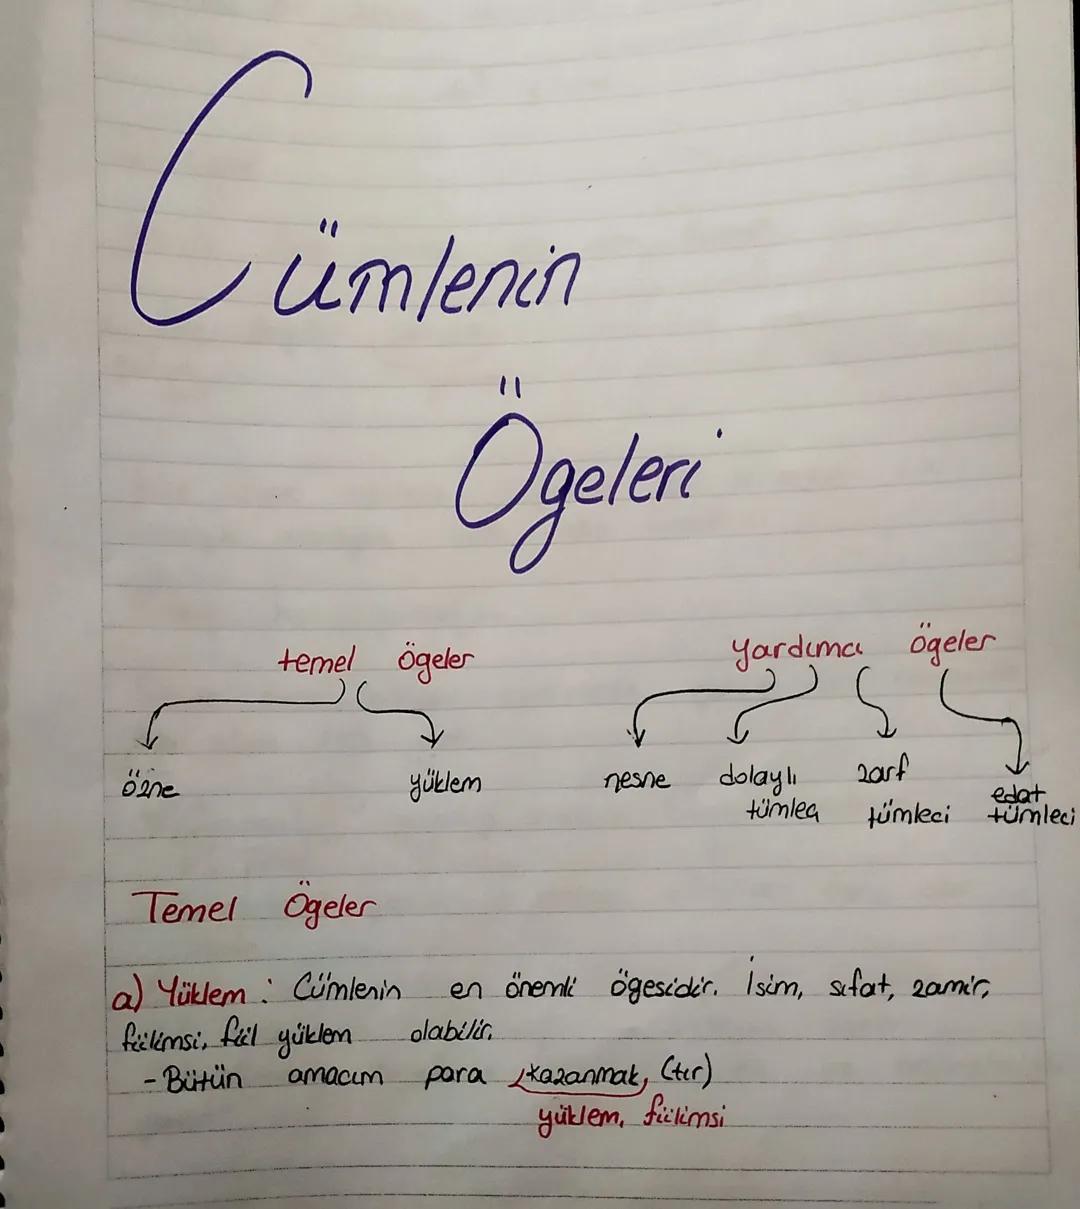 Cümlenin
Ögeleri
temel ögeler
yardımcı ögeler
özne
yüklem
nesne
dolaylı
tümleç
zarf
tümleci
edat
tümleci
Temel Ögeler
a) Yüklem : Cümlenin en önemli ögesidir. İsim, sıfat, zamir,
fiilimsi, fiil yüklem olabilir.
- Bütün amacım para kazanmak, (tır)
yüklem, fiilimsi